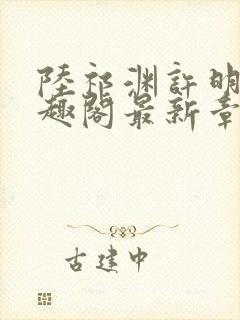 陸祁渊許明
趣閣最新章
古建中